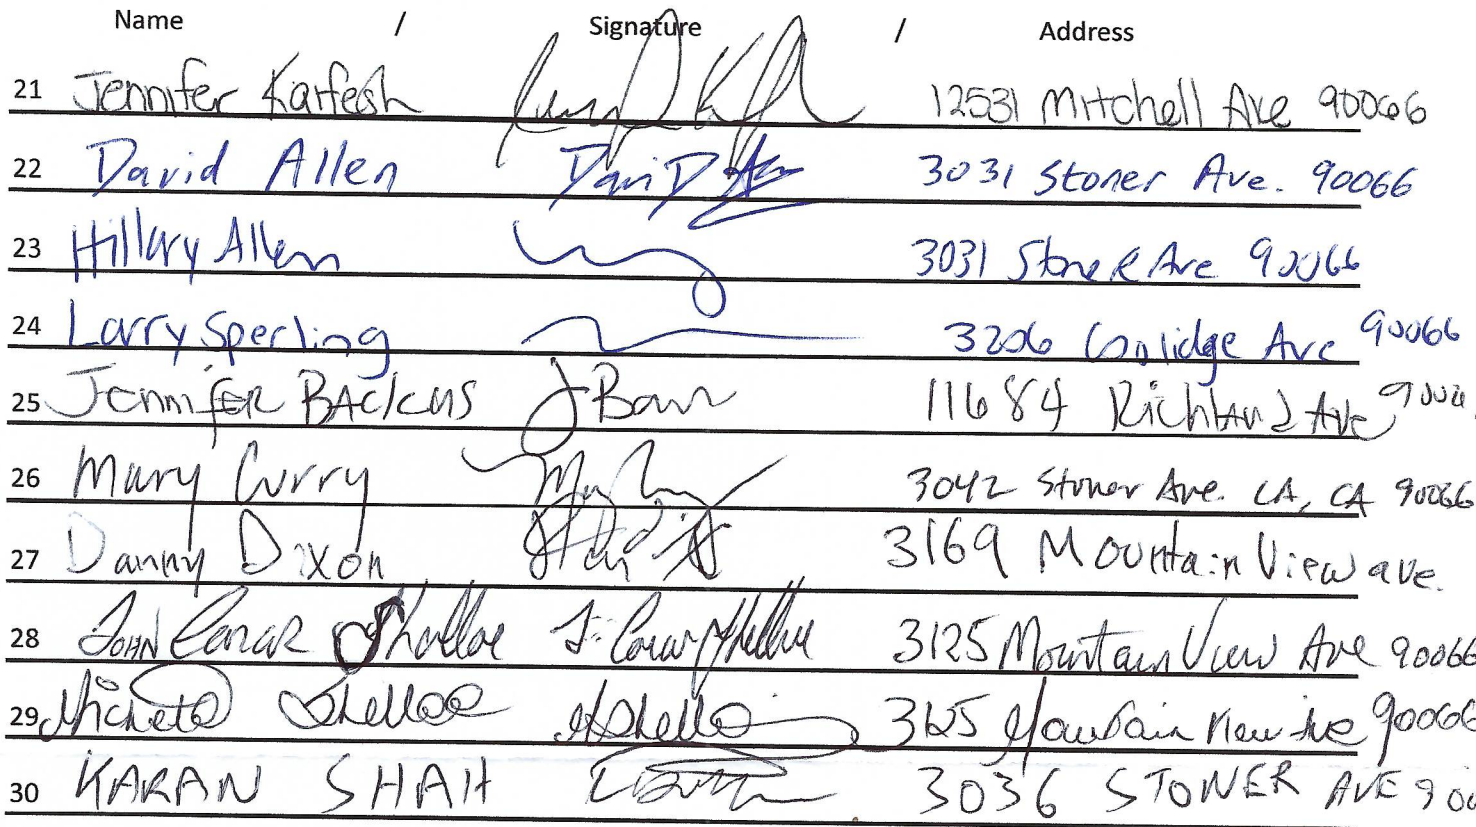 Name / Signature / Address
21 Jennifer Karfesh 12531 Mitchell Ave 90066
22 David Allen David Allen 3031 Stoner Ave. 90066
23 Hillary Allen 3031 Stoner Ave 90066
24 Larry Sperling 3206 Coolidge Ave 90066
25 Jennifer Backus 11684 Richland Ave
26 Mary Curry 3042 Stoner Ave. LA, CA 90066
27 Danny Dixon 3169 Mountain View ave.
28 John Conor Shelloe 3125 Mountain View Ave 90066
29 Michele Shelloe 3125 Mountain View Ave 90066
30 KARAN SHAH 3036 STONER AVE